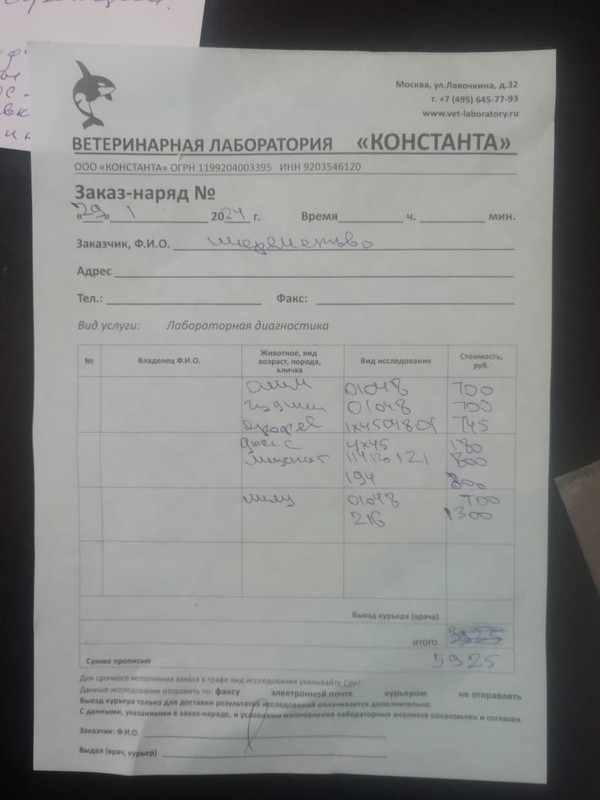 Москва, ул.Лавочкина, д.32
т. +7 (495) 645-77-93
www.vet-laboratory.ru
ВЕТЕРИНАРНАЯ ЛАБОРАТОРИЯ «КОНСТАНТА»
ООО «КОНСТАНТА» ОГРН 1199204003395 ИНН 9203546120
Заказ-наряд №
«29» 1 2024 г. Время ч. мин.
Заказчик, Ф.И.О. Шереметьево
Адрес
Тел.: Факс:
Вид услуги: Лабораторная диагностика
№ Владелец Ф.И.О. Животное, вид возраст, порода, кличка Вид исследования Стоимость, руб.
01048 700
01048 700
745
Джесс 4х45 180
121 800
194 800
01048 700
216 1300
Выезд курьера (врача)
ИТОГО
Сумма прописью 5925
Для срочного исполнения заказа в графе вид исследования указывайте Cito!
Данные исследования отправить по: факсу электронной почте курьером не отправлять
Выезд курьера только для доставки результатов исследований оплачивается дополнительно.
С данными, указанными в заказ-наряде, и условиями изготовления лабораторных анализов ознакомлен и согласен.
Заказчик: Ф.И.О.
Выдал (врач, курьер)